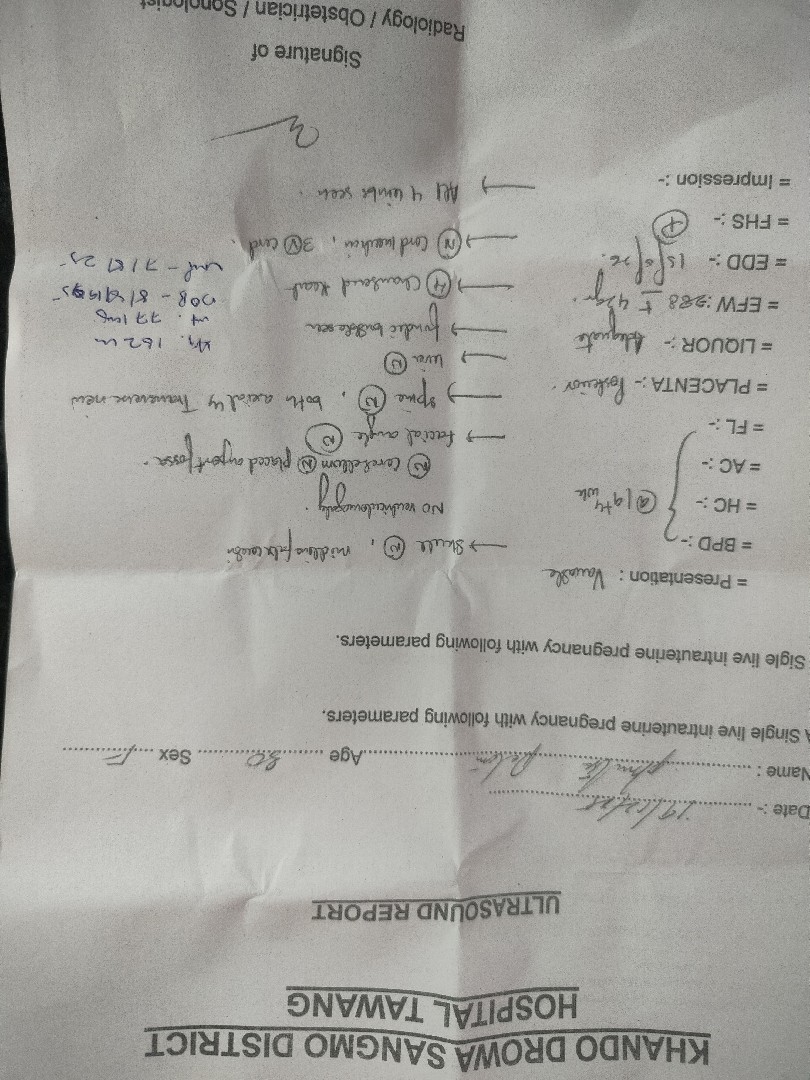 KHANDO DROWA SANGMO DISTRICT
HOSPITAL TAWANG
ULTRASOUND REPORT
Date :-
Name : Age 30 Sex F
A Single live intrauterine pregnancy with following parameters.
Sigle live intrauterine pregnancy with following parameters.
= Presentation : Variable
= BPD :-
= HC :-
= AC :-
= FL :-
@ 19+4 wk
= PLACENTA :- Posterior.
= LIQUOR :- Adequate
= EFW: 288 ± 42gr.
= EDD :-
= FHS :- (P)
= Impression :-
→ Skull (N), midline falx
No ventriculomegaly.
(N) Cerebellum (N) placed
→ facial angle (N)
→ spine (N), both axial & Transverse view
→ liver (N)
→ fundic bubble seen
→ (4) Chambered heart
→ (N) Cord insertion, 3(V) cord.
→ All 4 limbs seen.
162 cm
wt. 77 kg
DOB - 8/9/1995
Lmp - 7/8/25
Signature of
Radiology / Obstetrician / Sonologist